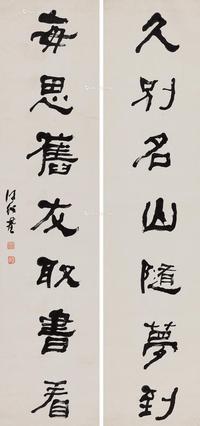 久别名山随夢到
每思舊友取書看